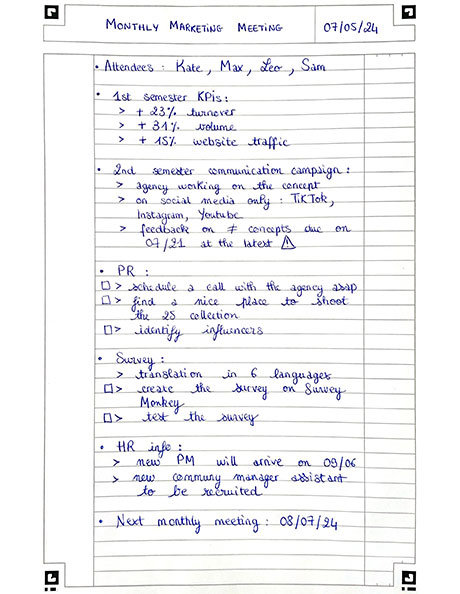 MONTHLY MARKETING MEETING
07/05/24
• Attendees : Kate, Max, Leo, Sam
• 1st semester KPIs :
> + 23% turnover
> + 31% volume
> + 15% website traffic
• 2nd semester communication campaign :
> agency working on the concept
> on social media only : TikTok,
Instagram, Youtube
> feedback on ≠ concepts due on
07/21 at the latest ⚠
• PR :
☐ > schedule a call with the agency asap
☐ > find a nice place to shoot
the 25 collection
☐ > identify influencers
• Survey :
> translation in 6 languages
☐ > create the survey on Survey
Monkey
☐ > test the survey
• HR info :
> new PM will arrive on 09/06
> new communy manager assistant
to be recruited
• Next monthly meeting : 08/07/24